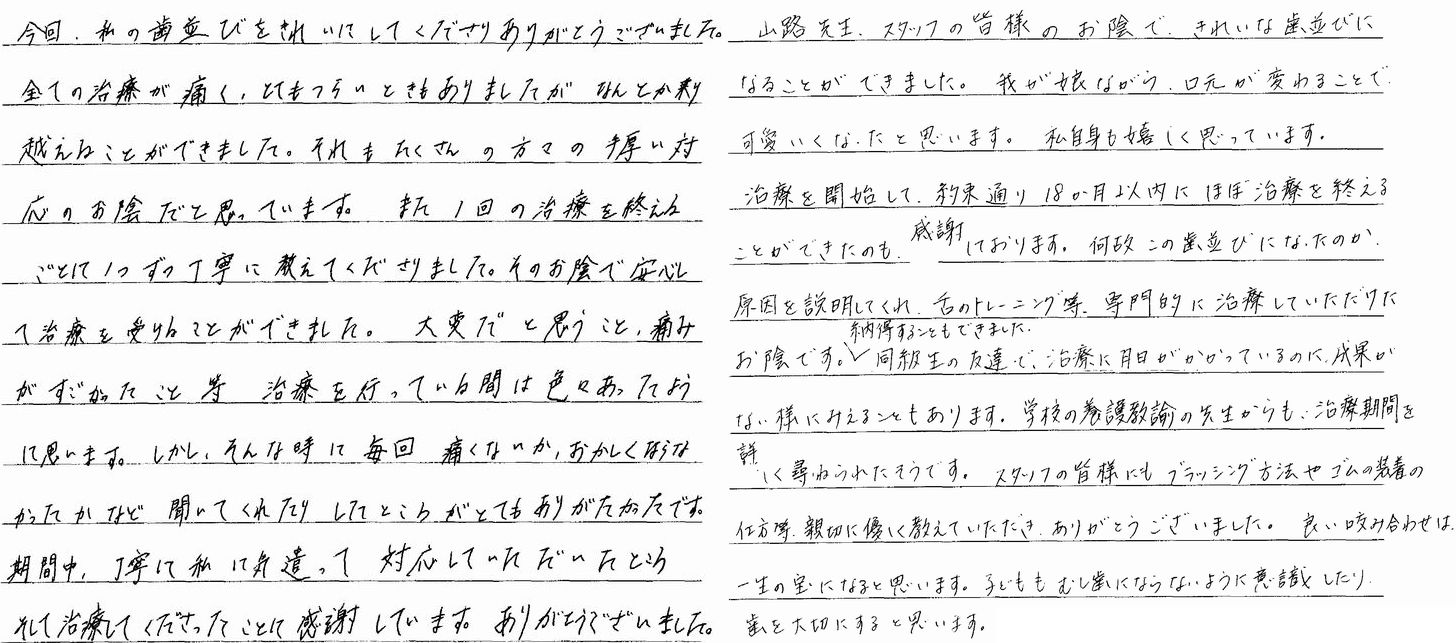 今回、私の歯並びをきれいにしてくださりありがとうございました。
全ての治療が痛く、とてもつらいときもありましたが なんとか乗り
越えることができました。それもたくさんの方々の手厚い対
応のお陰だと思っています。また1回の治療を終える
ごとに1つずつ丁寧に教えてくださりました。そのお陰で安心し
て治療を受けることができました。大変だと思うこと、痛み
がすごかったこと等 治療を行っている間は色々あったよう
に思います。しかし、そんな時に毎回 痛くないか、おかしくならな
かったかなど 聞いてくれたりしたところがとてもありがたかったです。
期間中、丁寧に私に気遣って 対応していただいたところ
そして治療してくださったことに感謝しています。ありがとうございました。
山路先生、スタッフの皆様のお陰で、きれいな歯並びに
なることができました。我が娘ながら、口元が変わることで
可愛いくなったと思います。私自身も嬉しく思っています。
治療を開始して、約束通り18か月以内にほぼ治療を終える
ことができたのも、感謝しております。何故この歯並びになったのか、
原因を説明してくれ、舌のトレーニング等、専門的に治療していただけた
お陰です。納得することもできました。同級生の友達で、治療に月日がかかっているのに、成果が
ない様にみえることもあります。学校の養護教諭の先生からも、治療期間を
詳しく尋ねられたそうです。スタッフの皆様にもブラッシング方法やゴムの装着の
仕方等、親切に優しく教えていただき、ありがとうございました。良い咬み合わせは、
一生の宝になると思います。子どももむし歯にならないように意識したり、
歯を大切にすると思います。